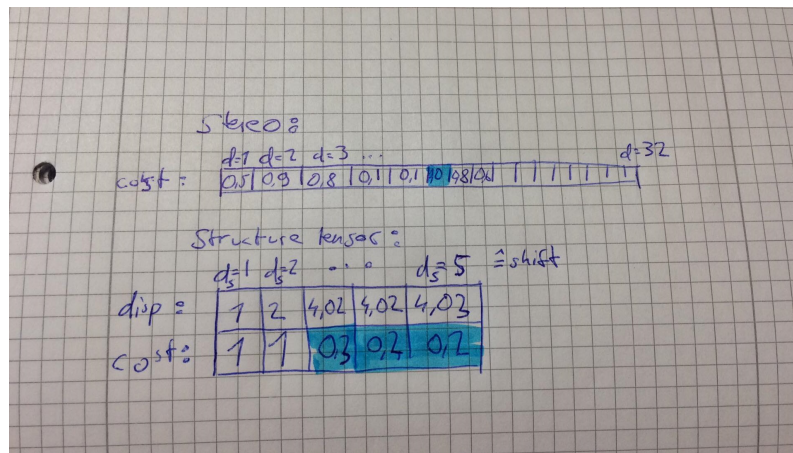 Stereo:
d=1 d=2 d=3 ... d=32
cost: 0,5 0,9 0,8 0,1 0,1 10 0,8 0,6
Structure tensor:
ds=1 ds=2 ... ds=5 ≙ shift
disp: 1 2 4,02 4,02 4,03
cost: 1 1 0,3 0,2 0,2